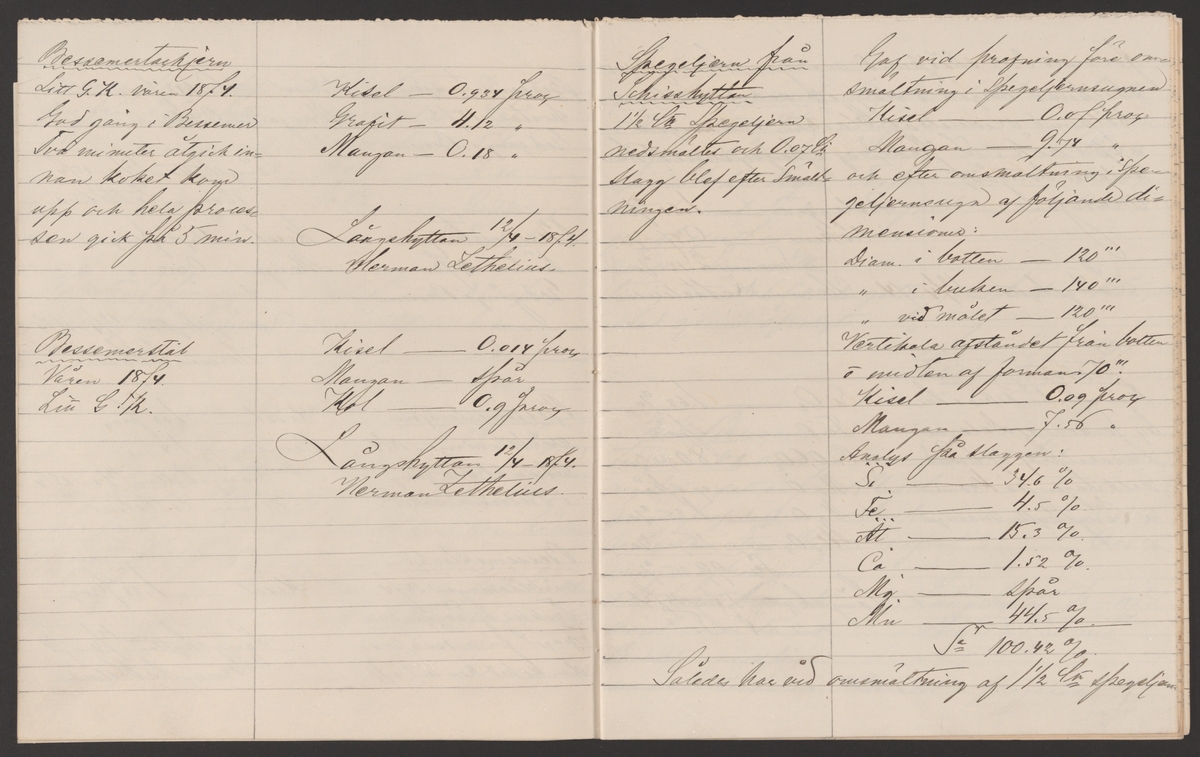 Bessemertackjern
Litt G.K. våren 1874.
God gång i Bessemer
Två minuter åtgick in-
nan koket kom
upp och hela proces-
sen gick på 5 min.
Kisel — 0.934 proz
Grafit — 4.12 "
Mangan — 0.18 "
Långshyttan 12/4 – 1874.
Herman Lethelius.
Bessemerstål
Våren 1874
Litt G.K.
Kisel — 0.014 proz
Mangan — spår
Kol — 0.9 proz
Långshyttan 12/4 – 1874.
Herman Zethelius.
Spegeljern från
Schisshyttan
1 1/2 Ctr Spegeljern
nedsmältes och 0.07 Ctr
slagg blef efter smält-
ningen.
Gaf vid profning före om-
smältning i spegeljernsugnen
Kisel — 0.05 proz
Mangan — 9.74 "
och efter omsmältning i spe-
geljernsugn af följande di-
mensioner:
Diam. i botten — 120'''
" i buken — 140'''
" vid målet — 120'''
Vertikala afståndet från botten
o midten af forman 70'''.
Kisel — 0.09 proz
Mangan — 7.56 "
Analys på slaggen:
Si — 34.6 %
Fe — 4.5 %
Al — 15.3 %
Ca — 1.52 %.
Mg — spår
Mn — 44.5 %
Sa 100.42 %.
Således har vid omsmältning af 1 1/2 Ctr spegeljern